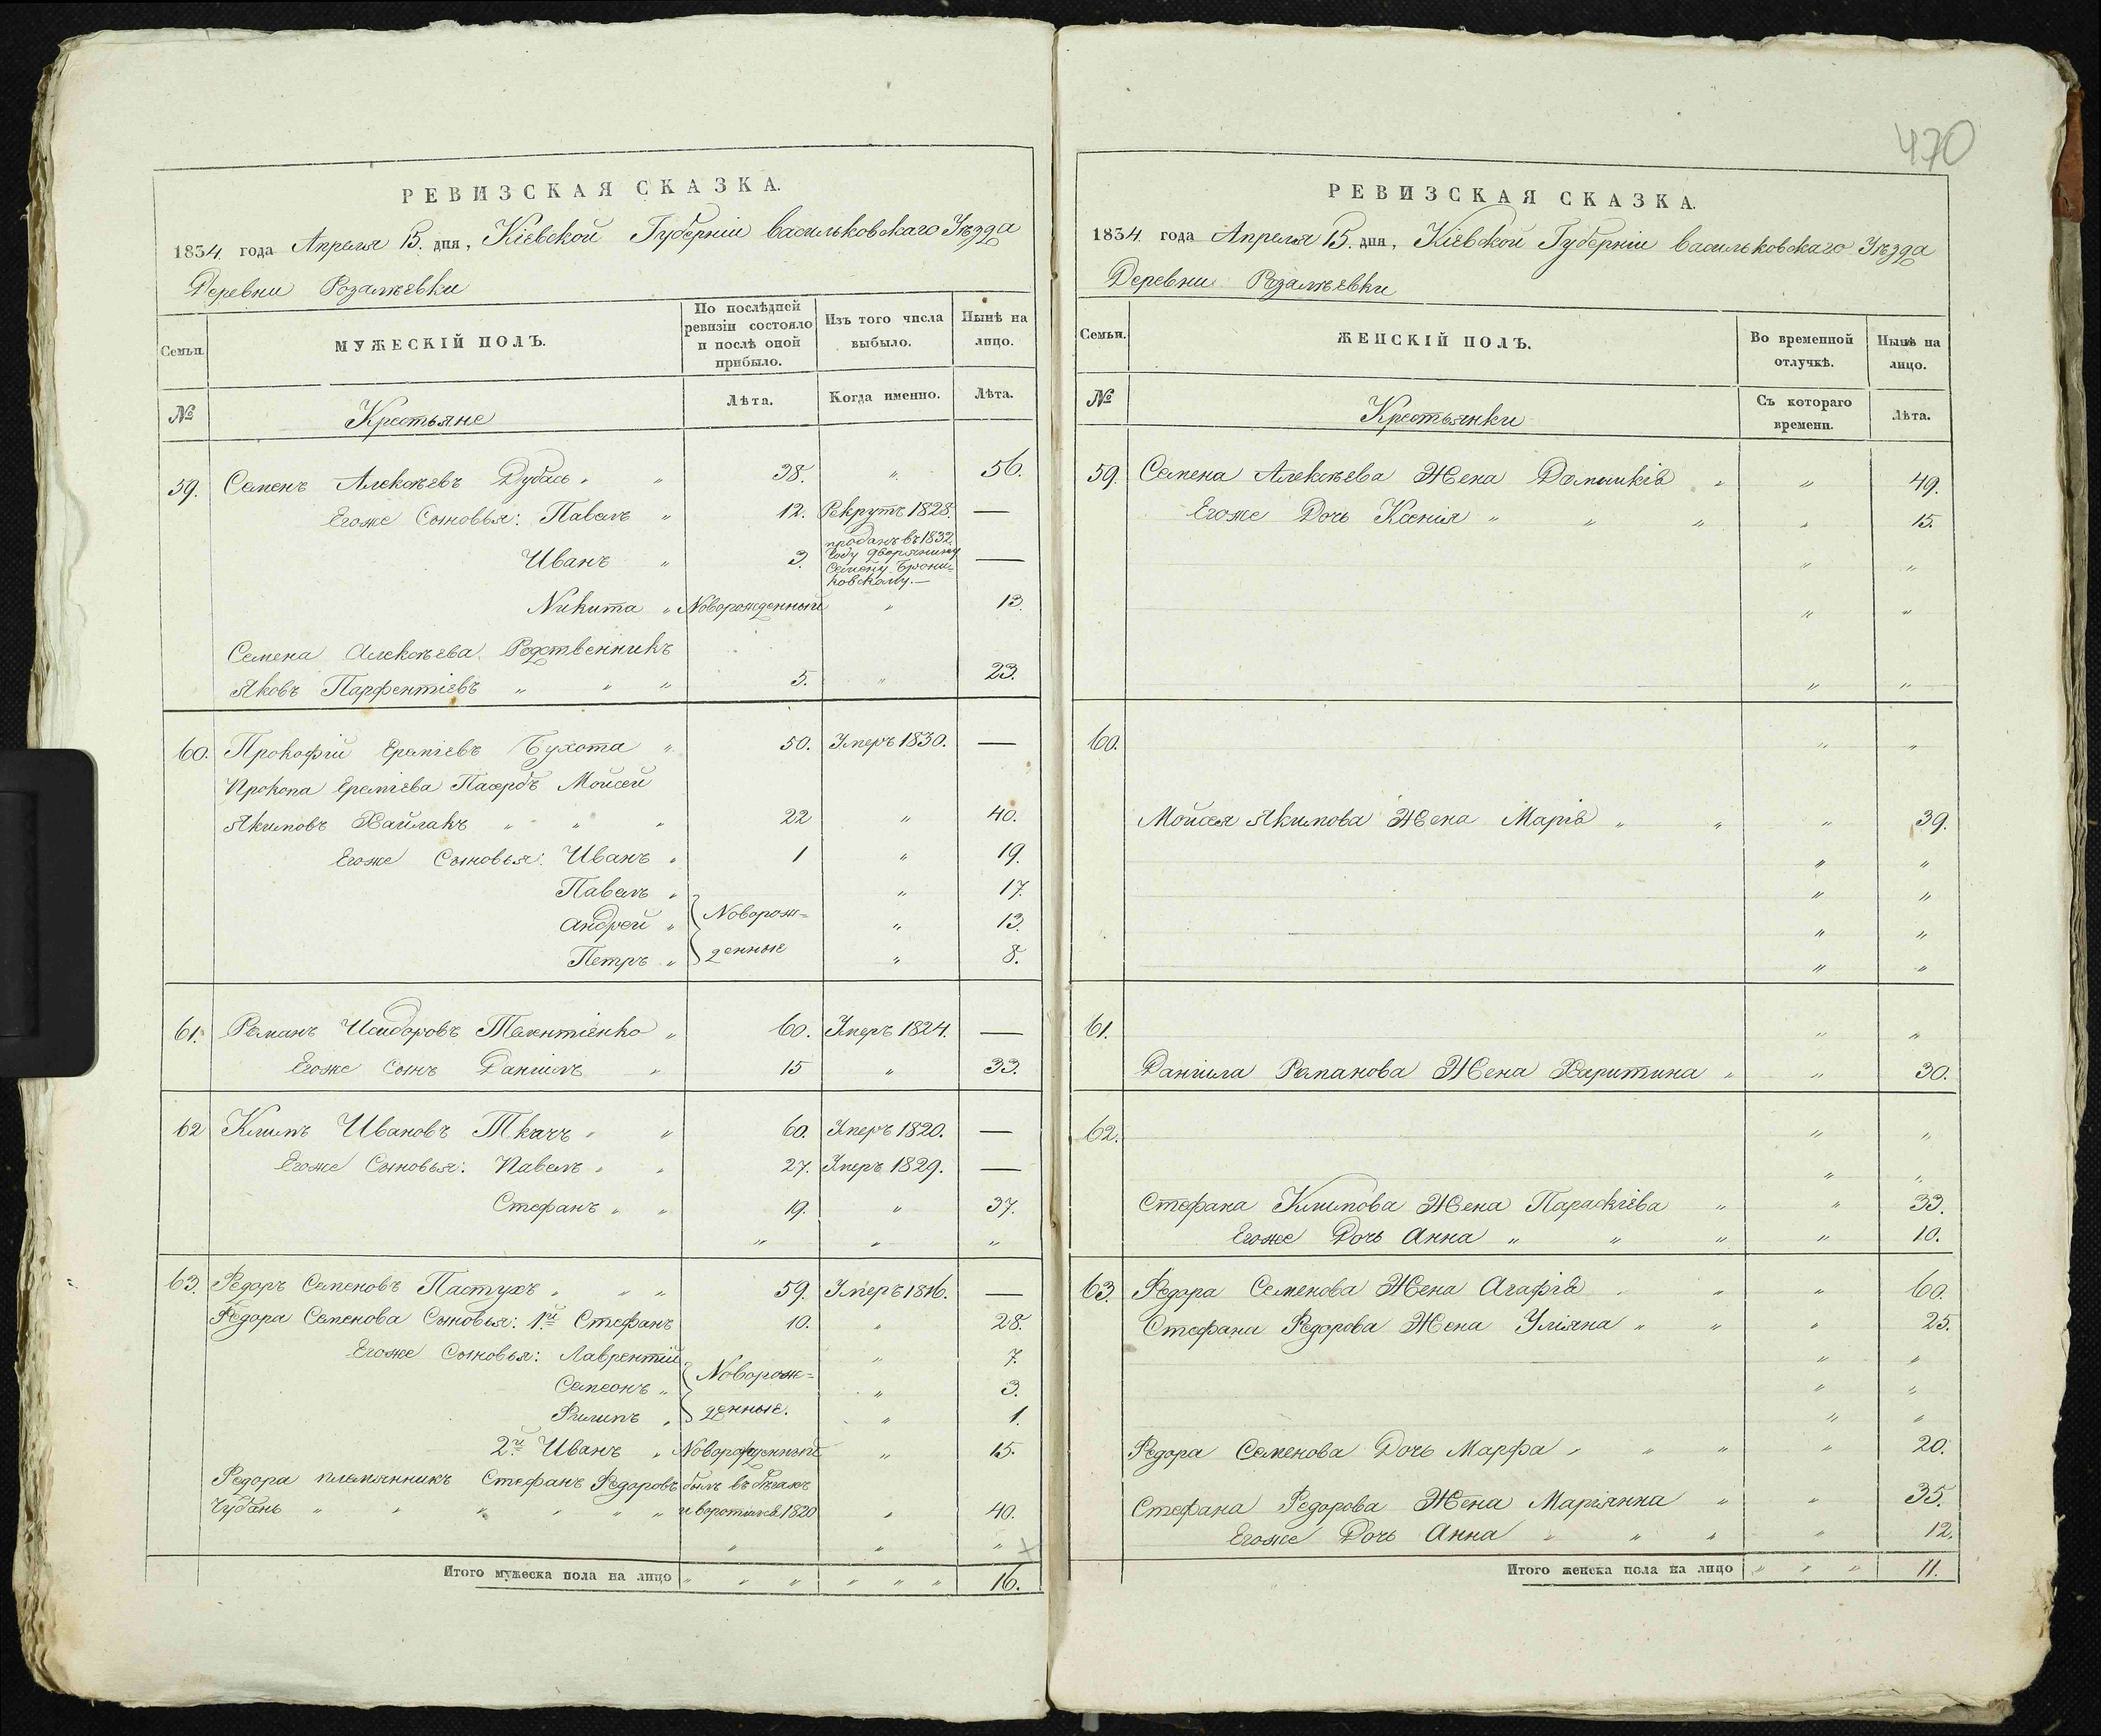 РЕВИЗСКАЯ СКАЗКА.
1834. года Апреля 15. дня, Кіевской Губерніи Васильковскаго Уѣзда
Деревни Розалѣевки
Семьи.
МУЖЕСКІЙ ПОЛЪ.
По послѣдней ревизіи состояло и послѣ оной прибыло.
Изъ того числа выбыло.
Нынѣ на лицо.
№
Крестьяне
Лѣта.
Когда именно.
Лѣта.
59. Семенъ Алексѣевъ Дубасъ „ „ 38. „ 56.
Егоже Сыновья: Павелъ „ 12. Рекрутъ 1828. —
Иванъ „ 3. проданъ въ 1832. году дворянину Семену Брони= ковскому.— —
Никита „ Новорожденный „ 13.
Семена Алексѣева Родственникъ
Яковъ Парфентіевъ „ „ „ 5. „ 23.
60. Прокофій Ереміевъ Бухота „ 50. Умеръ 1830. —
Прокопа Ереміева Пасербъ Мойсей
Якимовъ Хайлакъ „ „ „ 22 „ 40.
Егоже Сыновья: Иванъ „ 1 „ 19.
Павелъ „ „ 17.
Андрей „ Новорож= „ 13.
Петръ „ денные „ 8.
61. Романъ Исидоровъ „ 60. Умеръ 1824. —
Егоже Сынъ Даніилъ „ 15 „ 33.
62 Климъ Ивановъ Ткачъ „ „ 60. Умеръ 1820. —
Егоже Сыновья: Павелъ „ „ 27. Умеръ 1829. —
Стефанъ „ „ 19. „ 37.
„ „ „
63. Федоръ Семеновъ Пастухъ „ „ „ 59. Умеръ 1816. —
Федора Семенова Сыновья: 1й Стефанъ 10. „ 28.
Егоже Сыновья: Лаврентій „ 7.
Семеонъ „ Новорож= „ 3.
Филипъ „ денные. „ 1.
2й Иванъ „ Новорожденный „ 15.
Федора племянникъ Стефанъ Федоровъ былъ въ бѣгахъ
Чубань „ „ „ „ „ „ и воротился 1820 „ 40.
„ „ „
Итого мужеска пола на лицо „ „ „ „ „ „ 16.
470
РЕВИЗСКАЯ СКАЗКА.
1834. года Апреля 15. дня, Кіевской Губерніи Васильковскаго Уѣзда
Деревни Розалѣевки
Семьи.
ЖЕНСКІЙ ПОЛЪ.
Во временной отлучкѣ.
Нынѣ на лицо.
№
Крестьянки
Съ котораго времени.
Лѣта.
59. Семена Алексѣева Жена Домникія „ „ 49.
Егоже Дочь Ксенія „ „ „ „ 15.
„ „
„ „
„ „
60. „ „
Мойсея Якимова Жена Марія „ „ „ 39.
„ „
„ „
„ „
„ „
61. „ „
Даніила Романова Жена Харитина „ „ 30.
62. „ „
„ „
Стефана Климова Жена Параскіева „ „ 33.
Егоже Дочь Анна „ „ „ „ 10.
63. Федора Семенова Жена Агафія „ „ „ 60.
Стефана Федорова Жена Уліяна „ „ „ 25.
„ „
„ „
„ „
Федора Семенова Дочь Марфа „ „ „ „ 20.
Стефана Федорова Жена Маріянна „ „ 35.
Егоже Дочь Анна „ „ „ „ 12.
Итого женска пола на лицо „ „ „ 11.